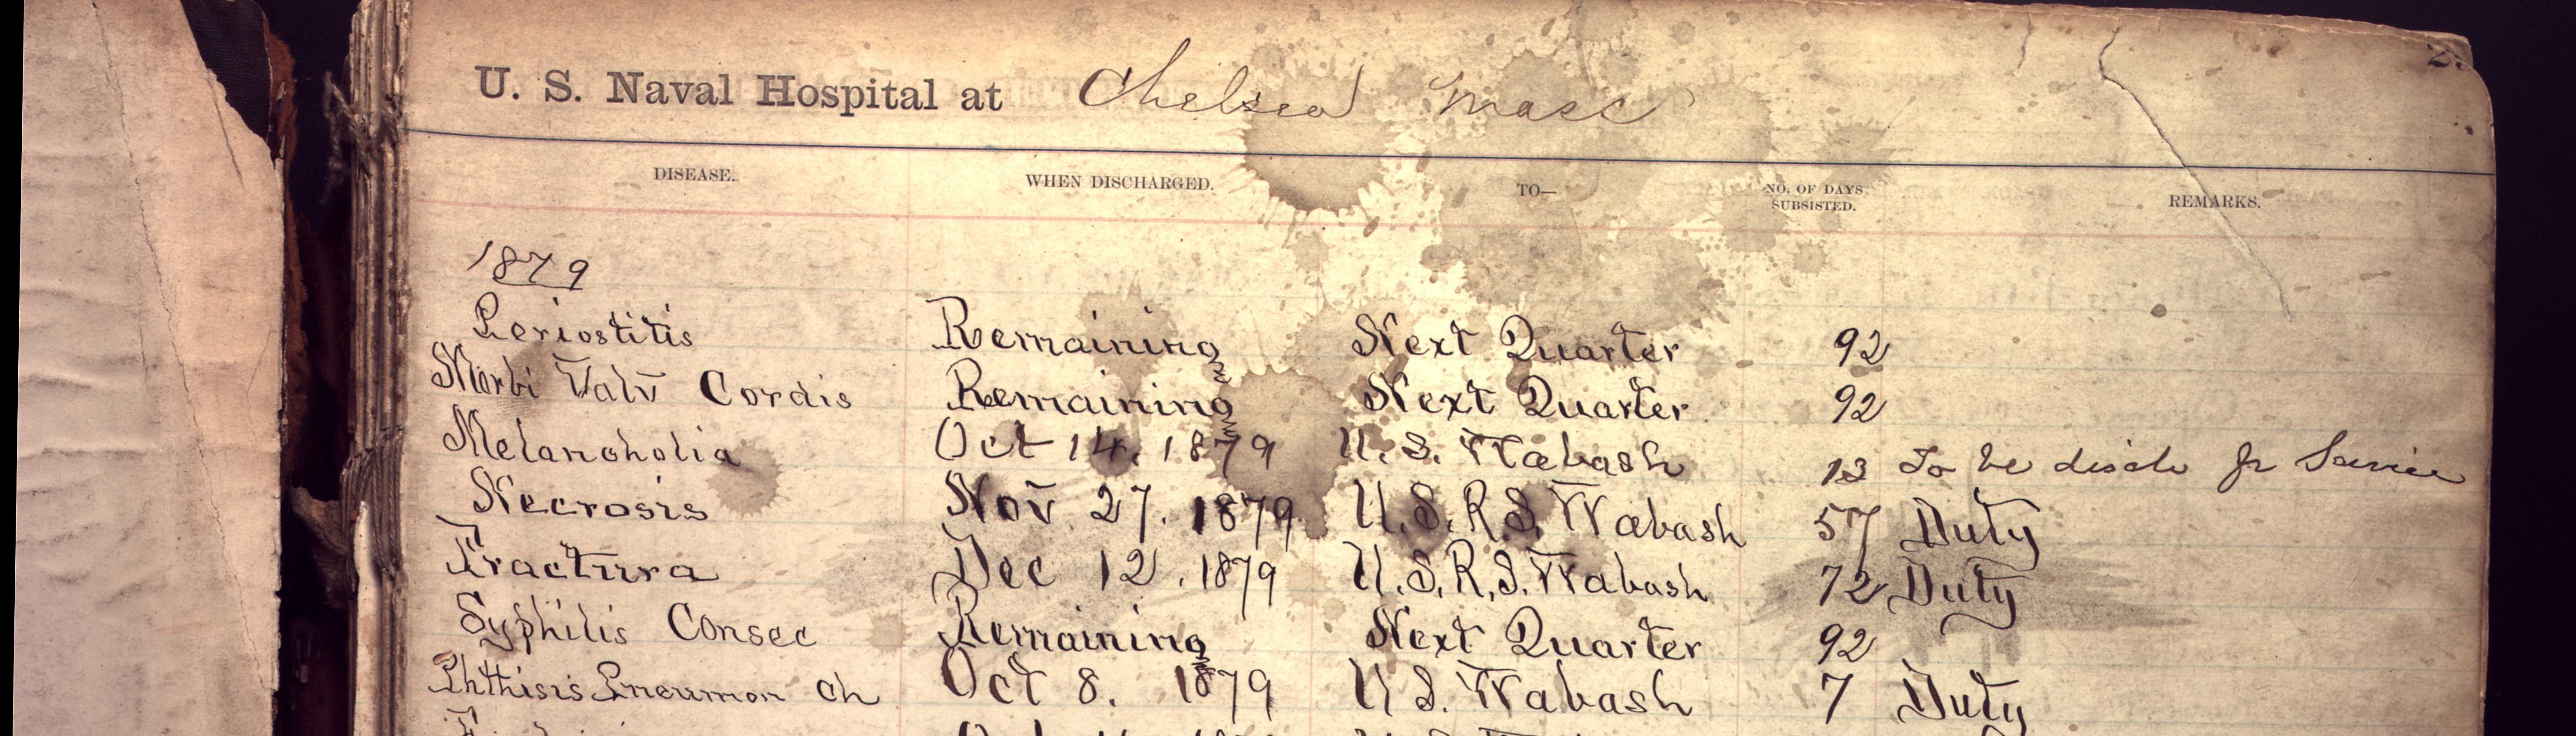 2.
U. S. Naval Hospital at Chelsea Mass
DISEASE. WHEN DISCHARGED. TO— NO. OF DAYS SUBSISTED. REMARKS.
1879
Periostitis Remaining Next Quarter 92
Morbi Valv Cordis Remaining Next Quarter 92
Melancholia Oct 14. 1879 U. S. Wabash 13 To be disch fr Service
Necrosis Nov 27. 1879 U.S.R.S. Wabash 57 Duty
Fractura Dec 12. 1879 U.S.R.S. Wabash 72 Duty
Syphilis Consec Remaining Next Quarter 92
Phthisis Pneumon Ch Oct 8. 1879 U S. Wabash 7 Duty